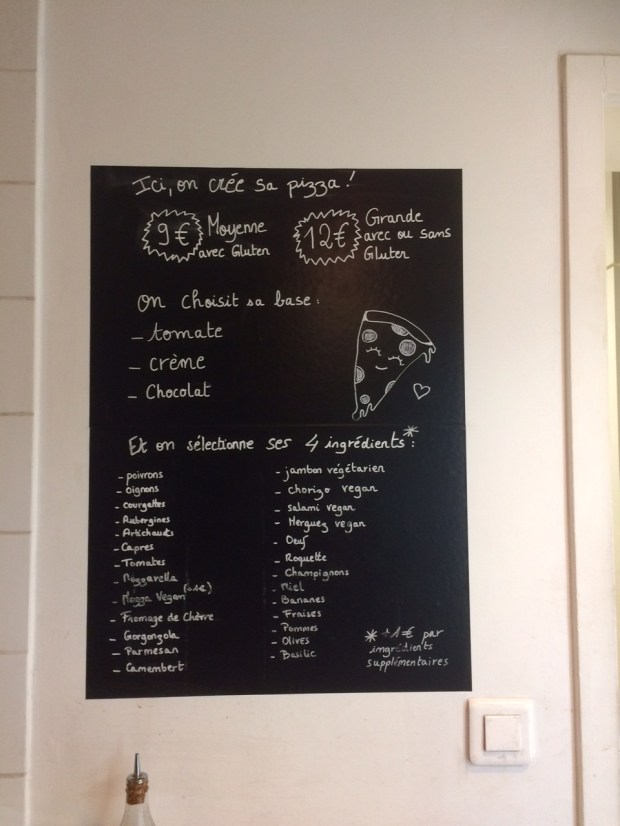 Ici, on crée sa pizza !
9€ Moyenne
avec Gluten
12€ Grande
avec ou sans
Gluten
On choisit sa base :
- tomate
- crème
- Chocolat
Et on sélectionne ses 4 ingrédients* :
- poivrons
- oignons
- courgettes
- Aubergines
- Artichauts
- Capres
- Tomates
- Mozzarella
- Mozza Vegan (+1€)
- Fromage de Chèvre
- Gorgonzola
- Parmesan
- Camembert
- jambon végétarien
- chorizo vegan
- salami vegan
- Merguez vegan
- Oeuf
- Roquette
- Champignons
- Miel
- Bananes
- Fraises
- Pommes
- Olives
- Basilic
* +1€ par
ingrédients
supplémentaires